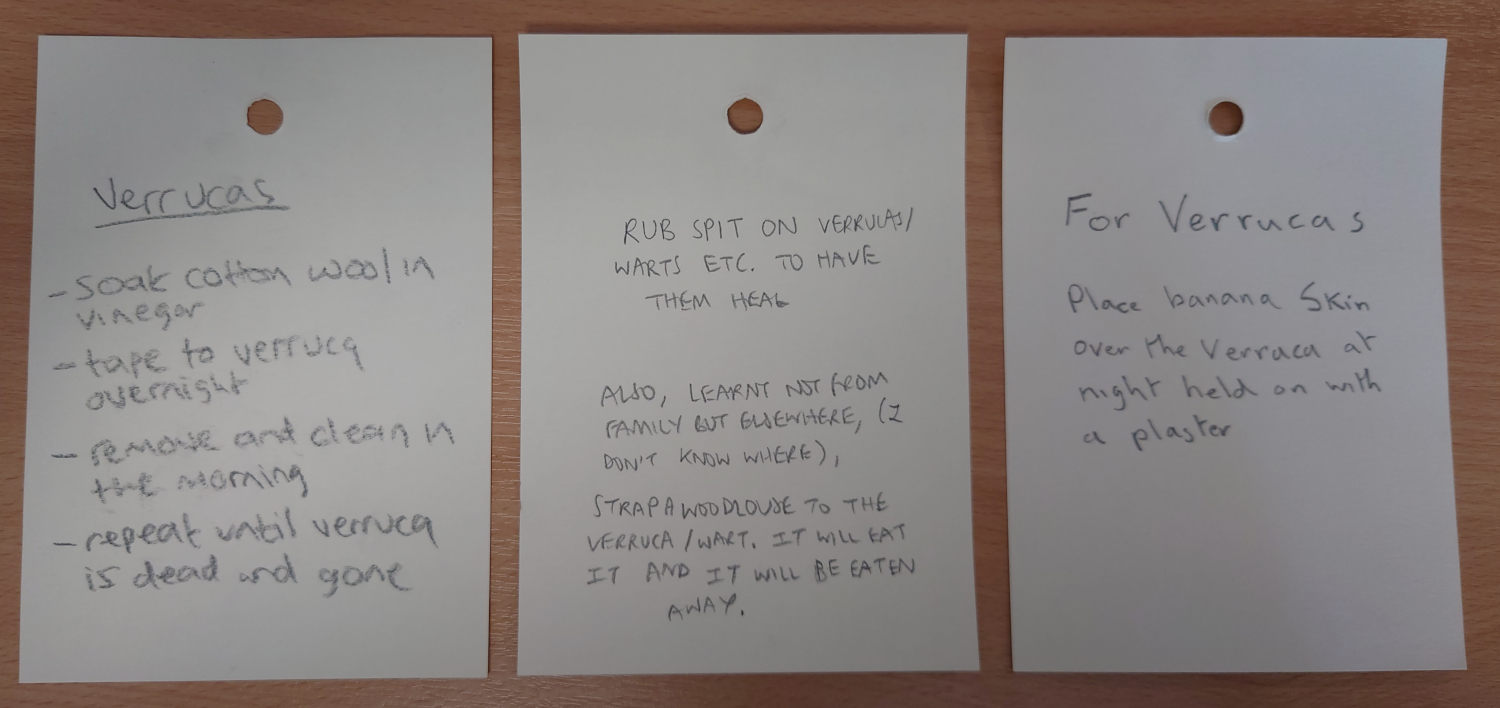 Verrucas
- soak cotton wool in
vinegar
- tape to verruca
overnight
- remove and clean in
the morning
- repeat until verruca
is dead and gone
RUB SPIT ON VERRUCAS/
WARTS ETC. TO HAVE
THEM HEAL
ALSO, LEARNT NOT FROM
FAMILY BUT ELSEWHERE, (I
DON'T KNOW WHERE),
STRAP A WOODLOUSE TO THE
VERRUCA / WART. IT WILL EAT
IT AND IT WILL BE EATEN
AWAY.
For Verrucas
Place banana Skin
over the Verruca at
night held on with
a plaster